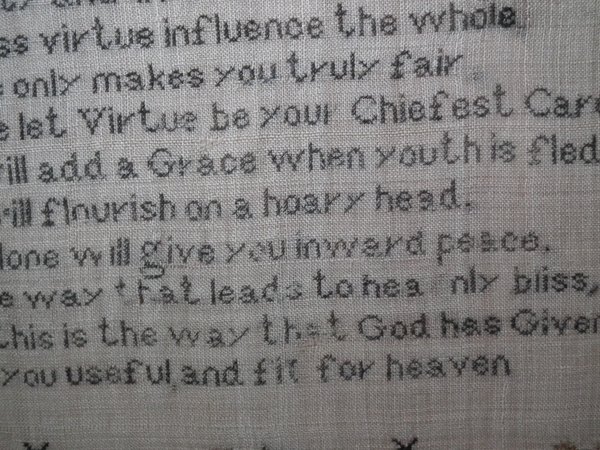 ss virtue influence the whole
only makes you truly fair
let Virtue be your Chiefest Care
ill add a Grace when youth is fled
ill flourish on a hoary head.
lone will give you inward peace.
e way that leads to hea nly bliss,
this is the way that God has Given
you useful and fit for heaven